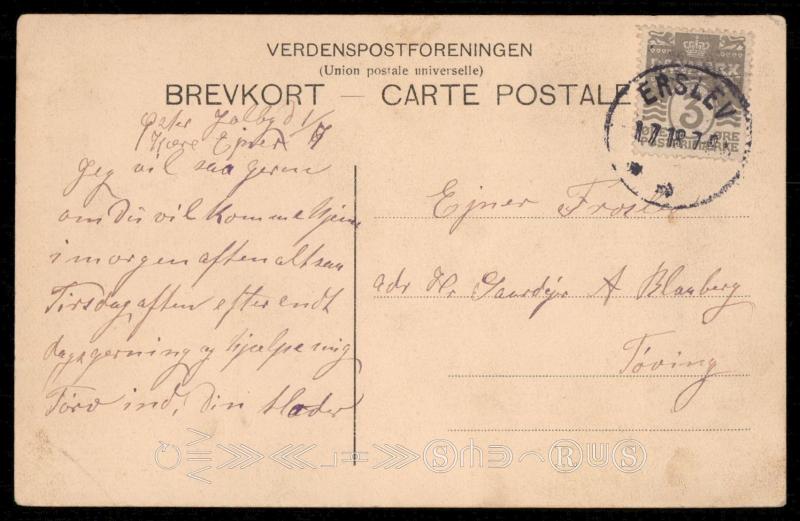 VERDENSPOSTFORENINGEN
(Union postale universelle)
BREVKORT — CARTE POSTALE
DANMARK
3
POSTFRIMÆRKE
ERSLEV
1.7.18.7
Øster Jølby d 1/7
Kjære Ejner
Jeg vil saa gerne
om Du vil komme hjem
i morgen aften altsaa
Tirsdag aften efter endt
dagsgerning og hjælpe mig
Tørv ind, Din Moder
Ejner
adr Hr Gaardejer A Blauberg
Tøving